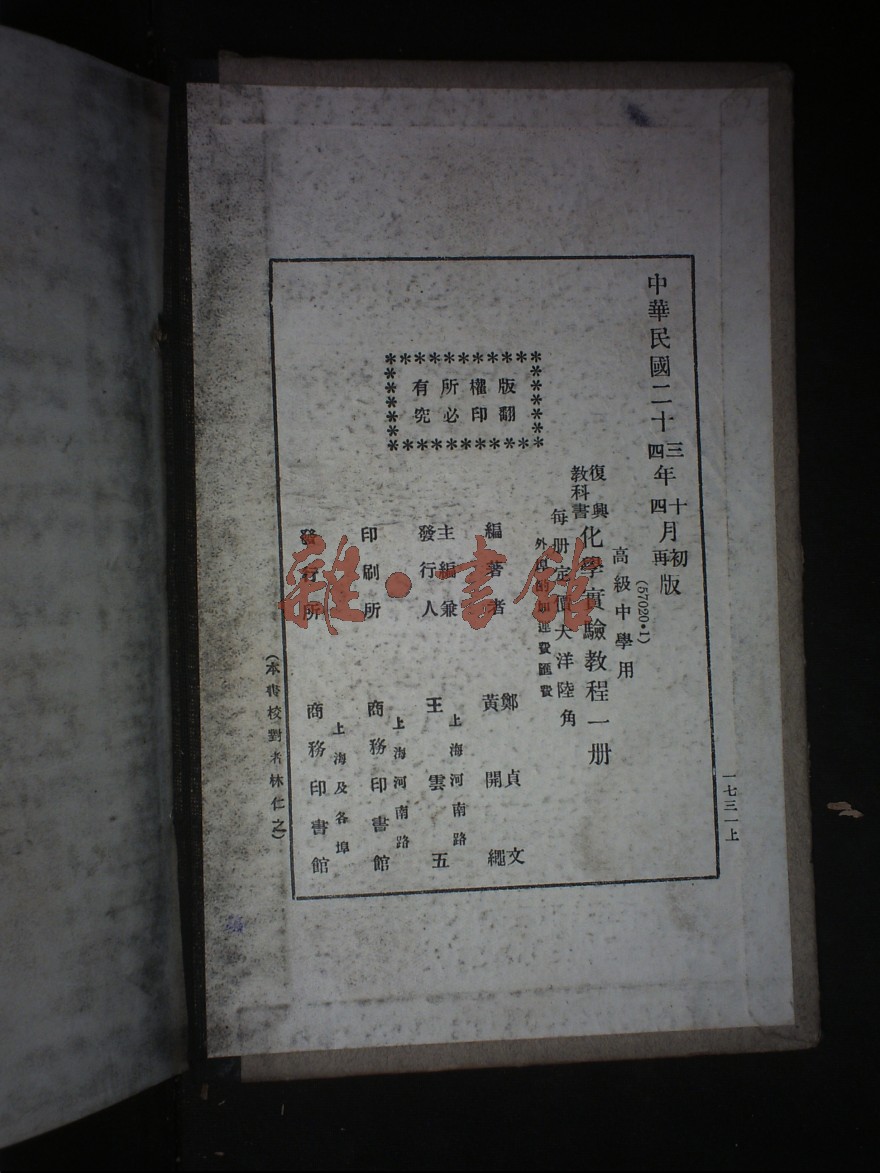 中華民國二十三年十月初版
四年四月再版
(57020•1)
高級中學用
復興教科書
化學實驗教程一册
每册定價大洋陸角
外埠酌加運費匯費
版權所有
翻印必究
編著者
鄭貞文
黃開繩
主編兼發行人
上海河南路
王雲五
印刷所
上海河南路
商務印書館
發行所
上海及各埠
商務印書館
(本書校對者林仁之)
一七三一上
雜·書館